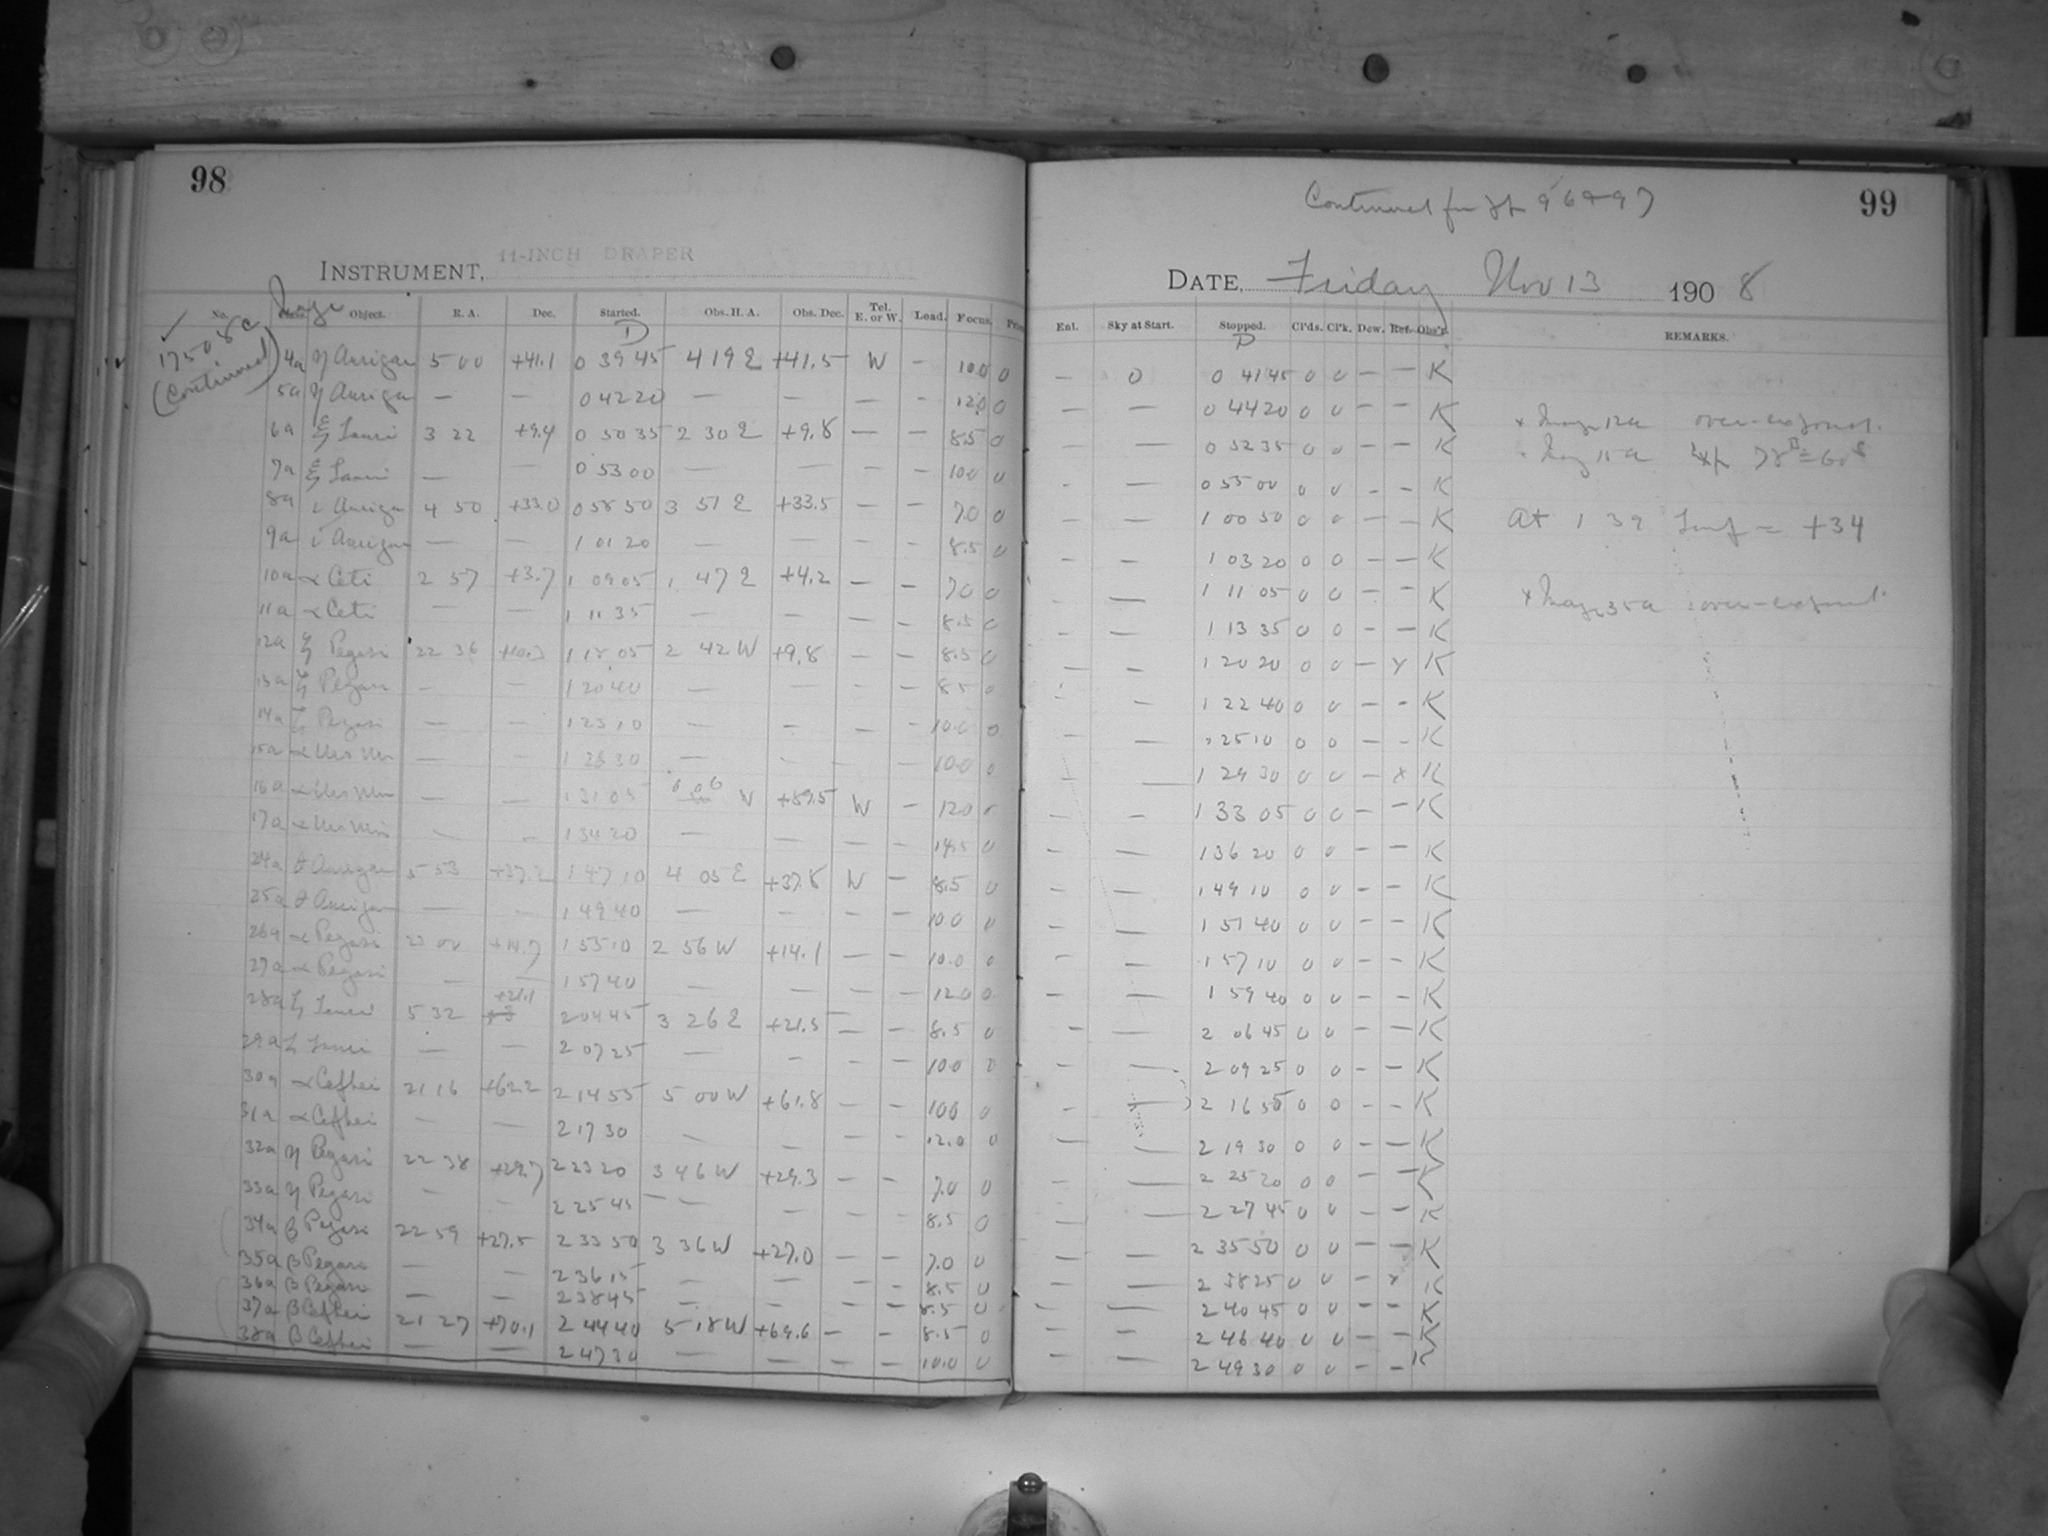 98
INSTRUMENT, 11-INCH DRAPER
No. Image Object. R. A. Dec. Started. Obs. H. A. Obs. Dec. Tel. E. or W. Load. Focus.
D
(Continued)
4a η Aurigae 5 00 +41.1 0 39 45 4 19 E +41.5 W – 10.0 0
5a η Aurigae — — 0 42 20 — — – – 12.0 0
6a ξ Tauri 3 22 +9.4 0 50 35 2 30 E +9.8 — — 8.5 0
7a ξ Tauri — — 0 53 00 — — — — 10.0 0
8a ι Aurigae 4 50 +33.0 0 58 50 3 51 E +33.5 — — 7.0 0
9a ι Aurigae — — 1 01 20 — — — — 8.5 0
10a α Ceti 2 57 +3.7 1 09 05 1 47 E +4.2 — — 7.0 0
11a α Ceti — — 1 11 35 — — — — 8.5 0
12a ζ Pegasi 22 36 +10.3 1 18 05 2 42 W +9.8 — — 8.5 0
13a ζ Pegasi — — 1 20 40 — — — — 8.5 0
14a ζ Pegasi — — 1 23 10 — — — – 10.0 0
15a α Urs Min — — 1 28 30 — — — — 10.0 0
16a α Urs Min — — 1 31 05 W +89.5 W – 12.0 0
17a α Urs Min — — 1 34 20 — — 0
24a θ Aurigae 5 53 +37.2 1 47 10 4 05 E +37.8 W – 8.5 0
25a θ Aurigae — — 1 49 40 — — — — 10.0 0
26a α Pegasi 23 00 +14.7 1 55 10 2 56 W +14.1 — — 10.0 0
27a α Pegasi — — 1 57 40 — — — — 12.0 0
28a ζ Tauri 5 32 +21.1 2 04 45 3 26 E +21.5 — — 8.5 0
29a ζ Tauri — — 2 07 25 — — — — 10.0 0
30a α Cephei 21 16 +62.2 2 14 55 5 00 W +61.8 — — 10.0 0
31a α Cephei — — 2 17 30 — — — — 12.0 0
32a η Pegasi 22 38 +29.7 2 23 20 3 46 W +29.3 — — 7.0 0
33a η Pegasi — — 2 25 45 — — — — 8.5 0
34a β Pegasi 22 59 +27.5 2 33 50 3 36 W +27.0 — — 7.0 0
35a β Pegasi — — 2 36 15 — — — — 8.5 0
36a β Pegasi — — 2 38 45 — — — — 8.5 0
37a β Cephei 21 27 +70.1 2 44 40 5 18 W +69.6 — — 8.5 0
38a β Cephei — — 2 47 30 — — — — 10.0 0
Continued fm pp 96 + 97
99
DATE, Friday Nov 13 1908
Enl. Sky at Start. Stopped. Cl'ds. Cl'k. Dew. Ref. Obs'r. REMARKS.
D
– 0 0 41 45 0 0 – – K
– — 0 44 20 0 0 – – K
– — 0 52 35 0 0 – – K
– — 0 55 00 0 0 – – K
– — 1 00 50 0 0 – – K
– — 1 03 20 0 0 – – K
– — 1 11 05 0 0 – – K
– — 1 13 35 0 0 – – K
– — 1 20 20 0 0 – x K
– 1 22 40 0 0 – – K
— 1 25 10 0 0 – – K
— 1 29 30 0 0 – x K
– – 1 33 05 0 0 – – K
– — 1 36 20 0 0 – – K
– — 1 49 10 0 0 – – K
– — 1 51 40 0 0 – – K
– — 1 57 10 0 0 – – K
– — 1 59 40 0 0 – – K
– — 2 06 45 0 0 – – K
– — 2 09 25 0 0 – – K
– — 2 16 55 0 0 – – K
– — 2 19 30 0 0 – – K
– — 2 25 20 0 0 – – K
– — 2 27 45 0 0 – – K
– — 2 35 50 0 0 – – K
– — 2 38 25 0 0 – x K
– — 2 40 45 0 0 – – K
– — 2 46 40 0 0 – – K
– — 2 49 30 0 0 – – K
x Image 12a over-exposed.
At 1 39 Temp = +34
x Image 35a over-exposed.